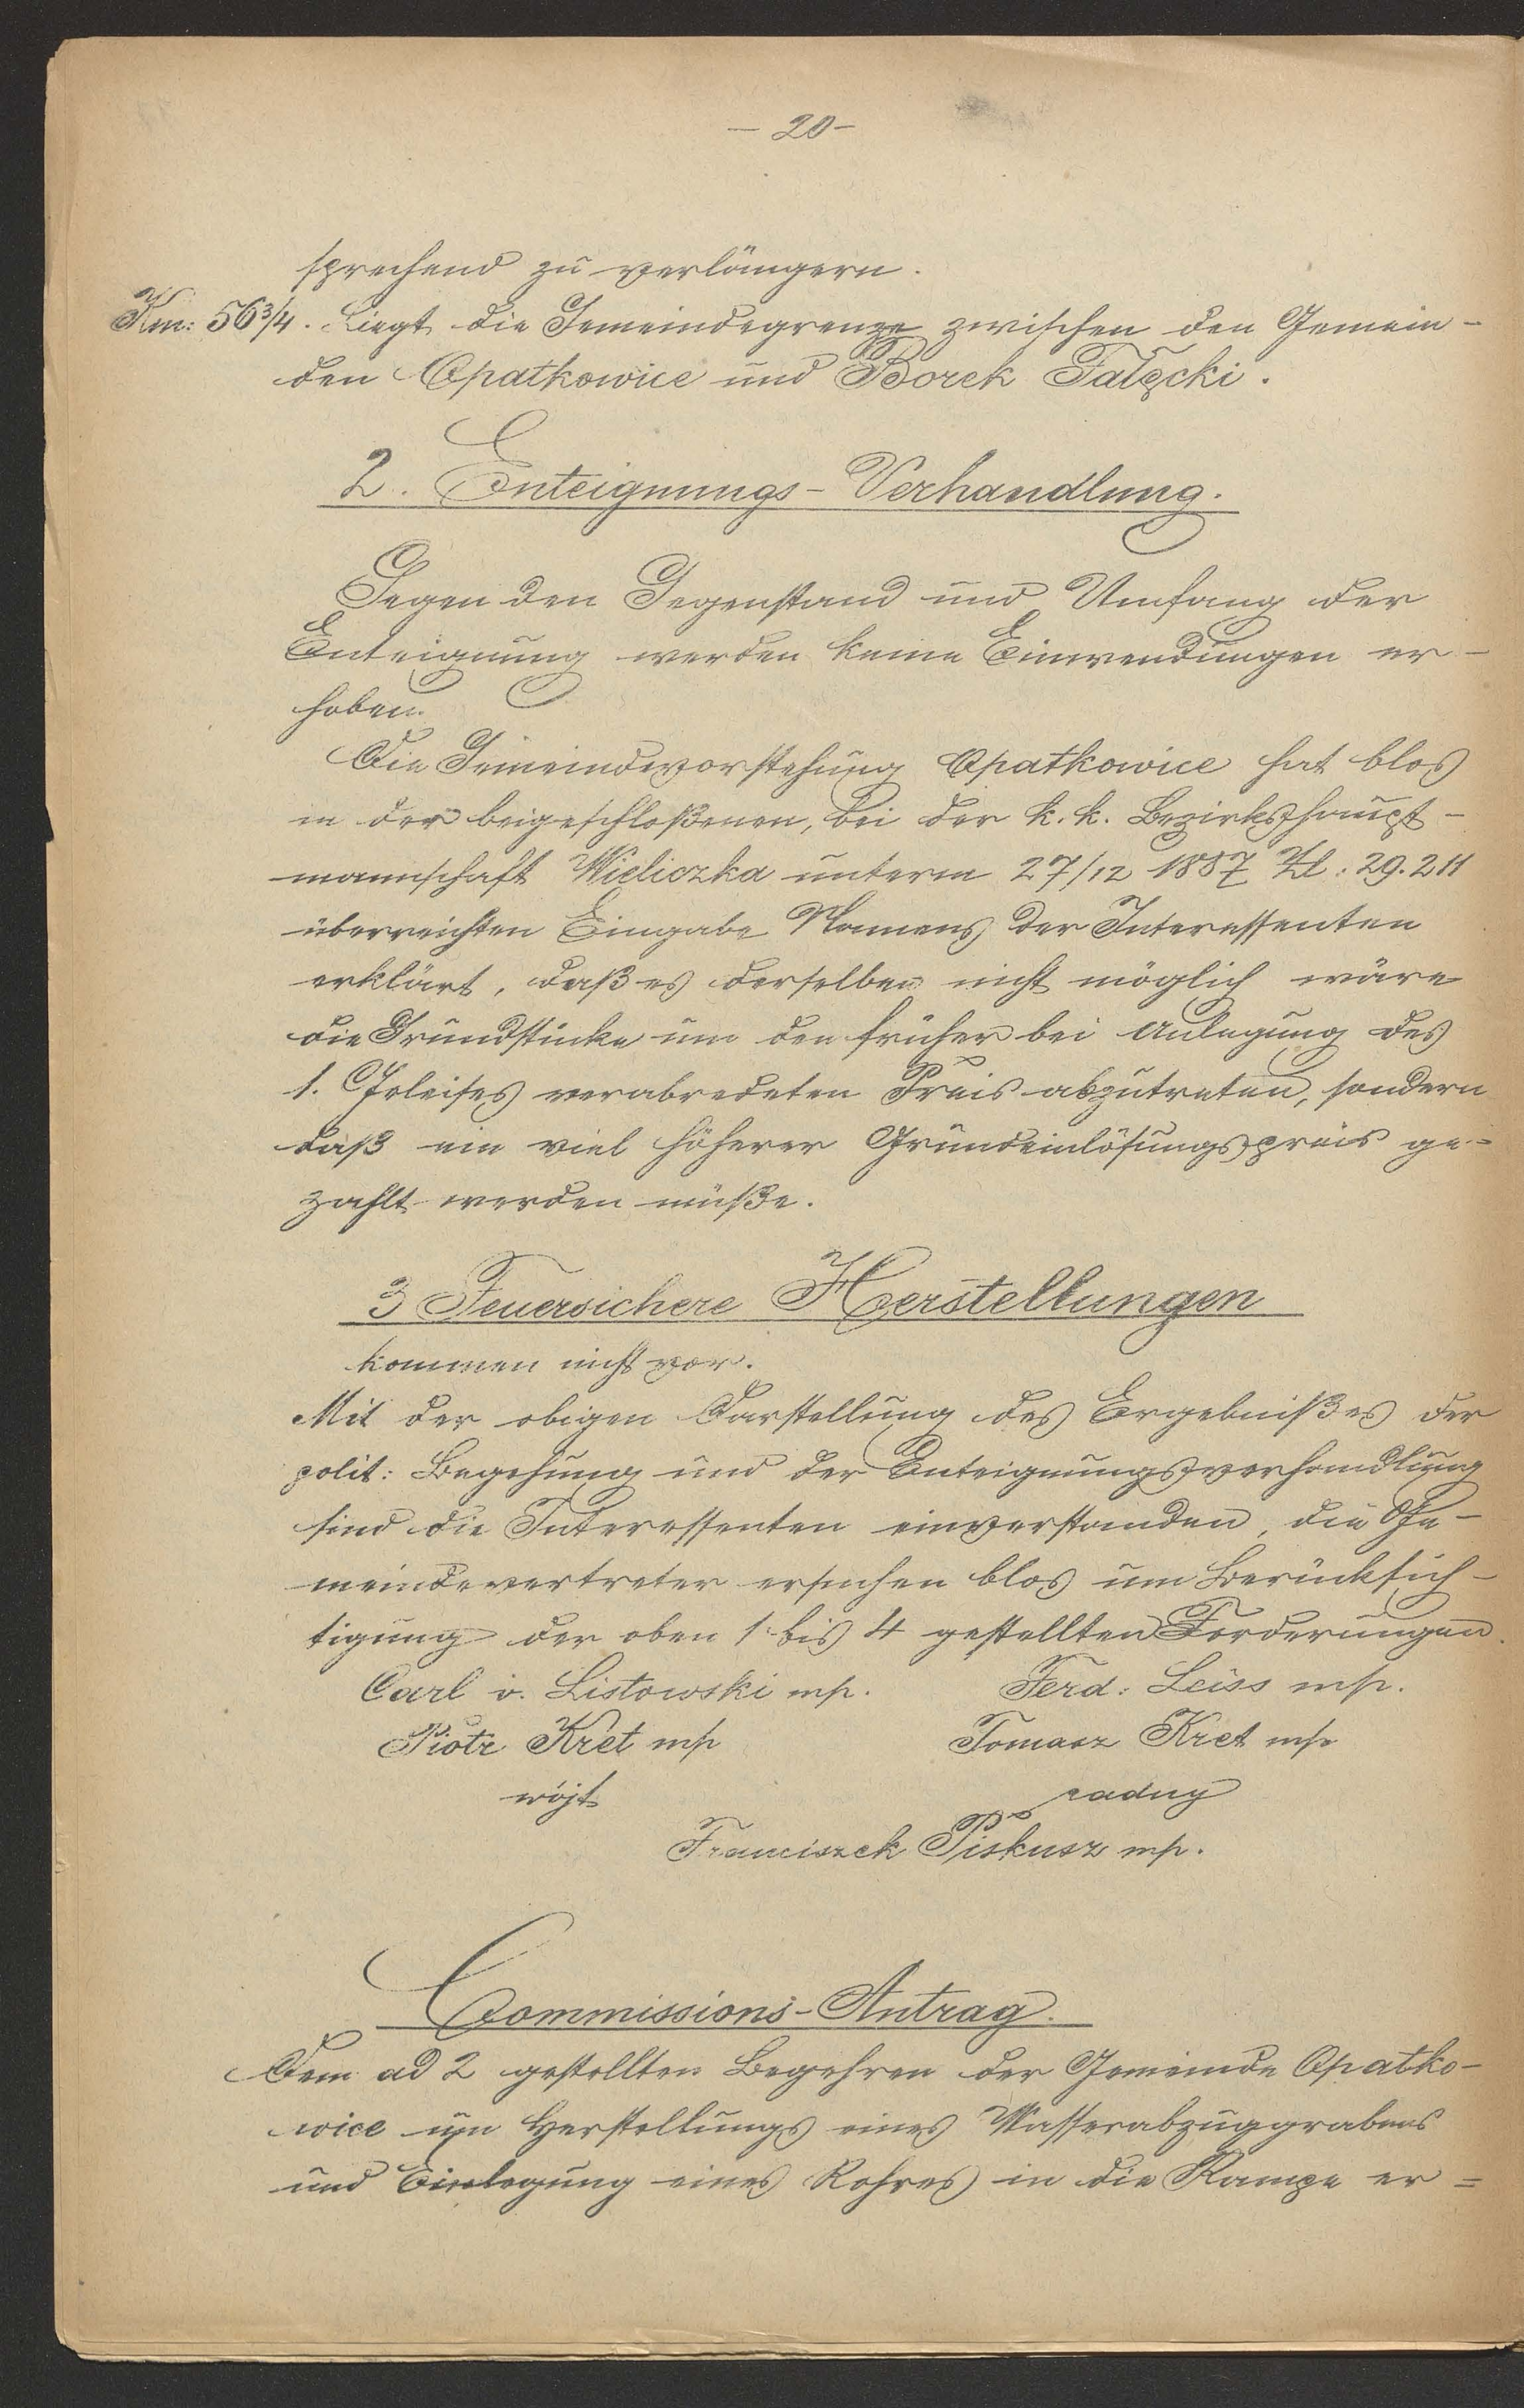 — 20 —
sprechend zu verlängern.
Km: 56 3/4. Liegt die Gemeindegrenze zwischen den Gemein-
den Opatkowice und Borek Fałęcki.
2. Enteignungs-Verhandlung.
Gegen den Gegenstand und Umfang der
Enteignung werden keine Einwendungen er-
hoben.
Die Gemeindevorstehung Opatkowice hat blos
in der beigeschloßenen, bei der k. k. Bezirkshaupt-
mannschaft Wieliczka unterm 27/12 1887 Zl: 29.211
überreichten Eingabe Namens der Interessenten
erklärt, daß es derselben nicht möglich wäre
die Grundstücke um den früher bei Anlegung des
1. Geleises verabredeten Preis abzutreten, sondern
daß ein viel höherer Grundeinlösungspreis ge-
zahlt werden müße.
3 Feuersichere Herstellungen
kommen nicht vor.
Mit der obigen Darstellung des Ergebnißes der
polit: Begehung und der Enteignungsverhandlung
sind die Interessenten einverstanden, die Ge-
meindevertreter ersuchen blos um Berücksich-
tigung der oben 1 bis 4 gestellten Forderungen.
Carl v. Listowski mp. Ferd: Leiss mp.
Piotr Kret mp Tomasz Kret mp
wójt radny
Franciszek Piskusz mp.
Commissions-Antrag.
Dem ad 2 gestellten Begehren der Gemeinde Opatko-
wice um Herstellungs eines Wasserabzuggrabens
und Einlegung eines Rohres in die Rampe er=